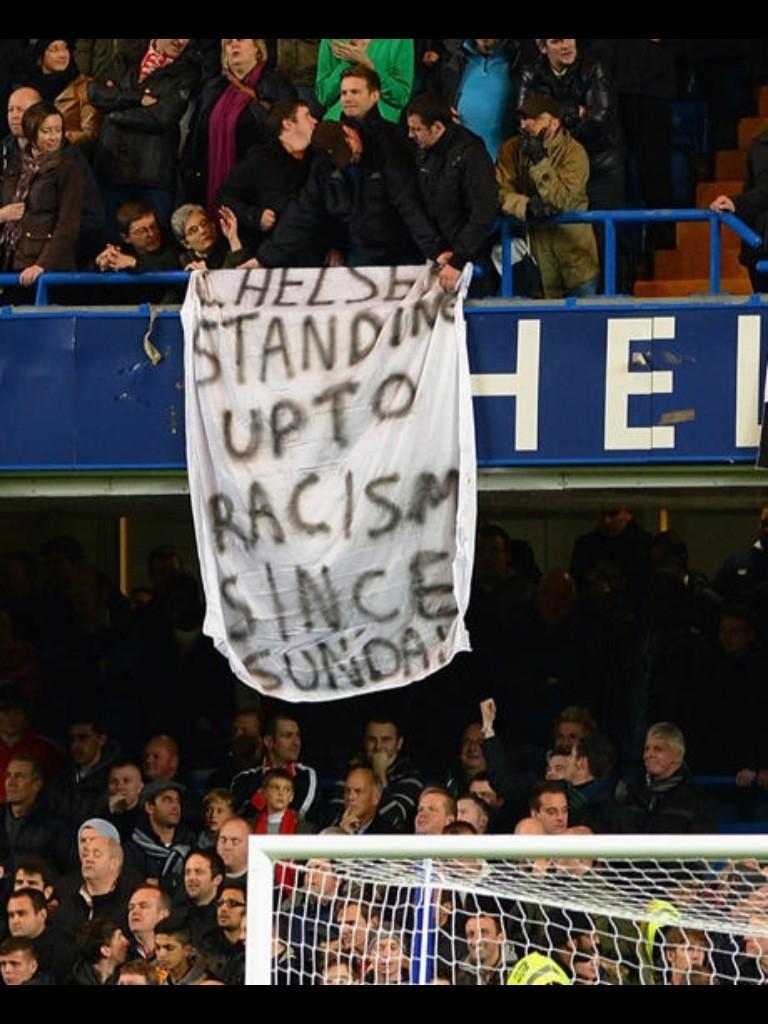 CHELSE
STANDING
UP TO
RACISM
SINCE
SUNDAY
HEL